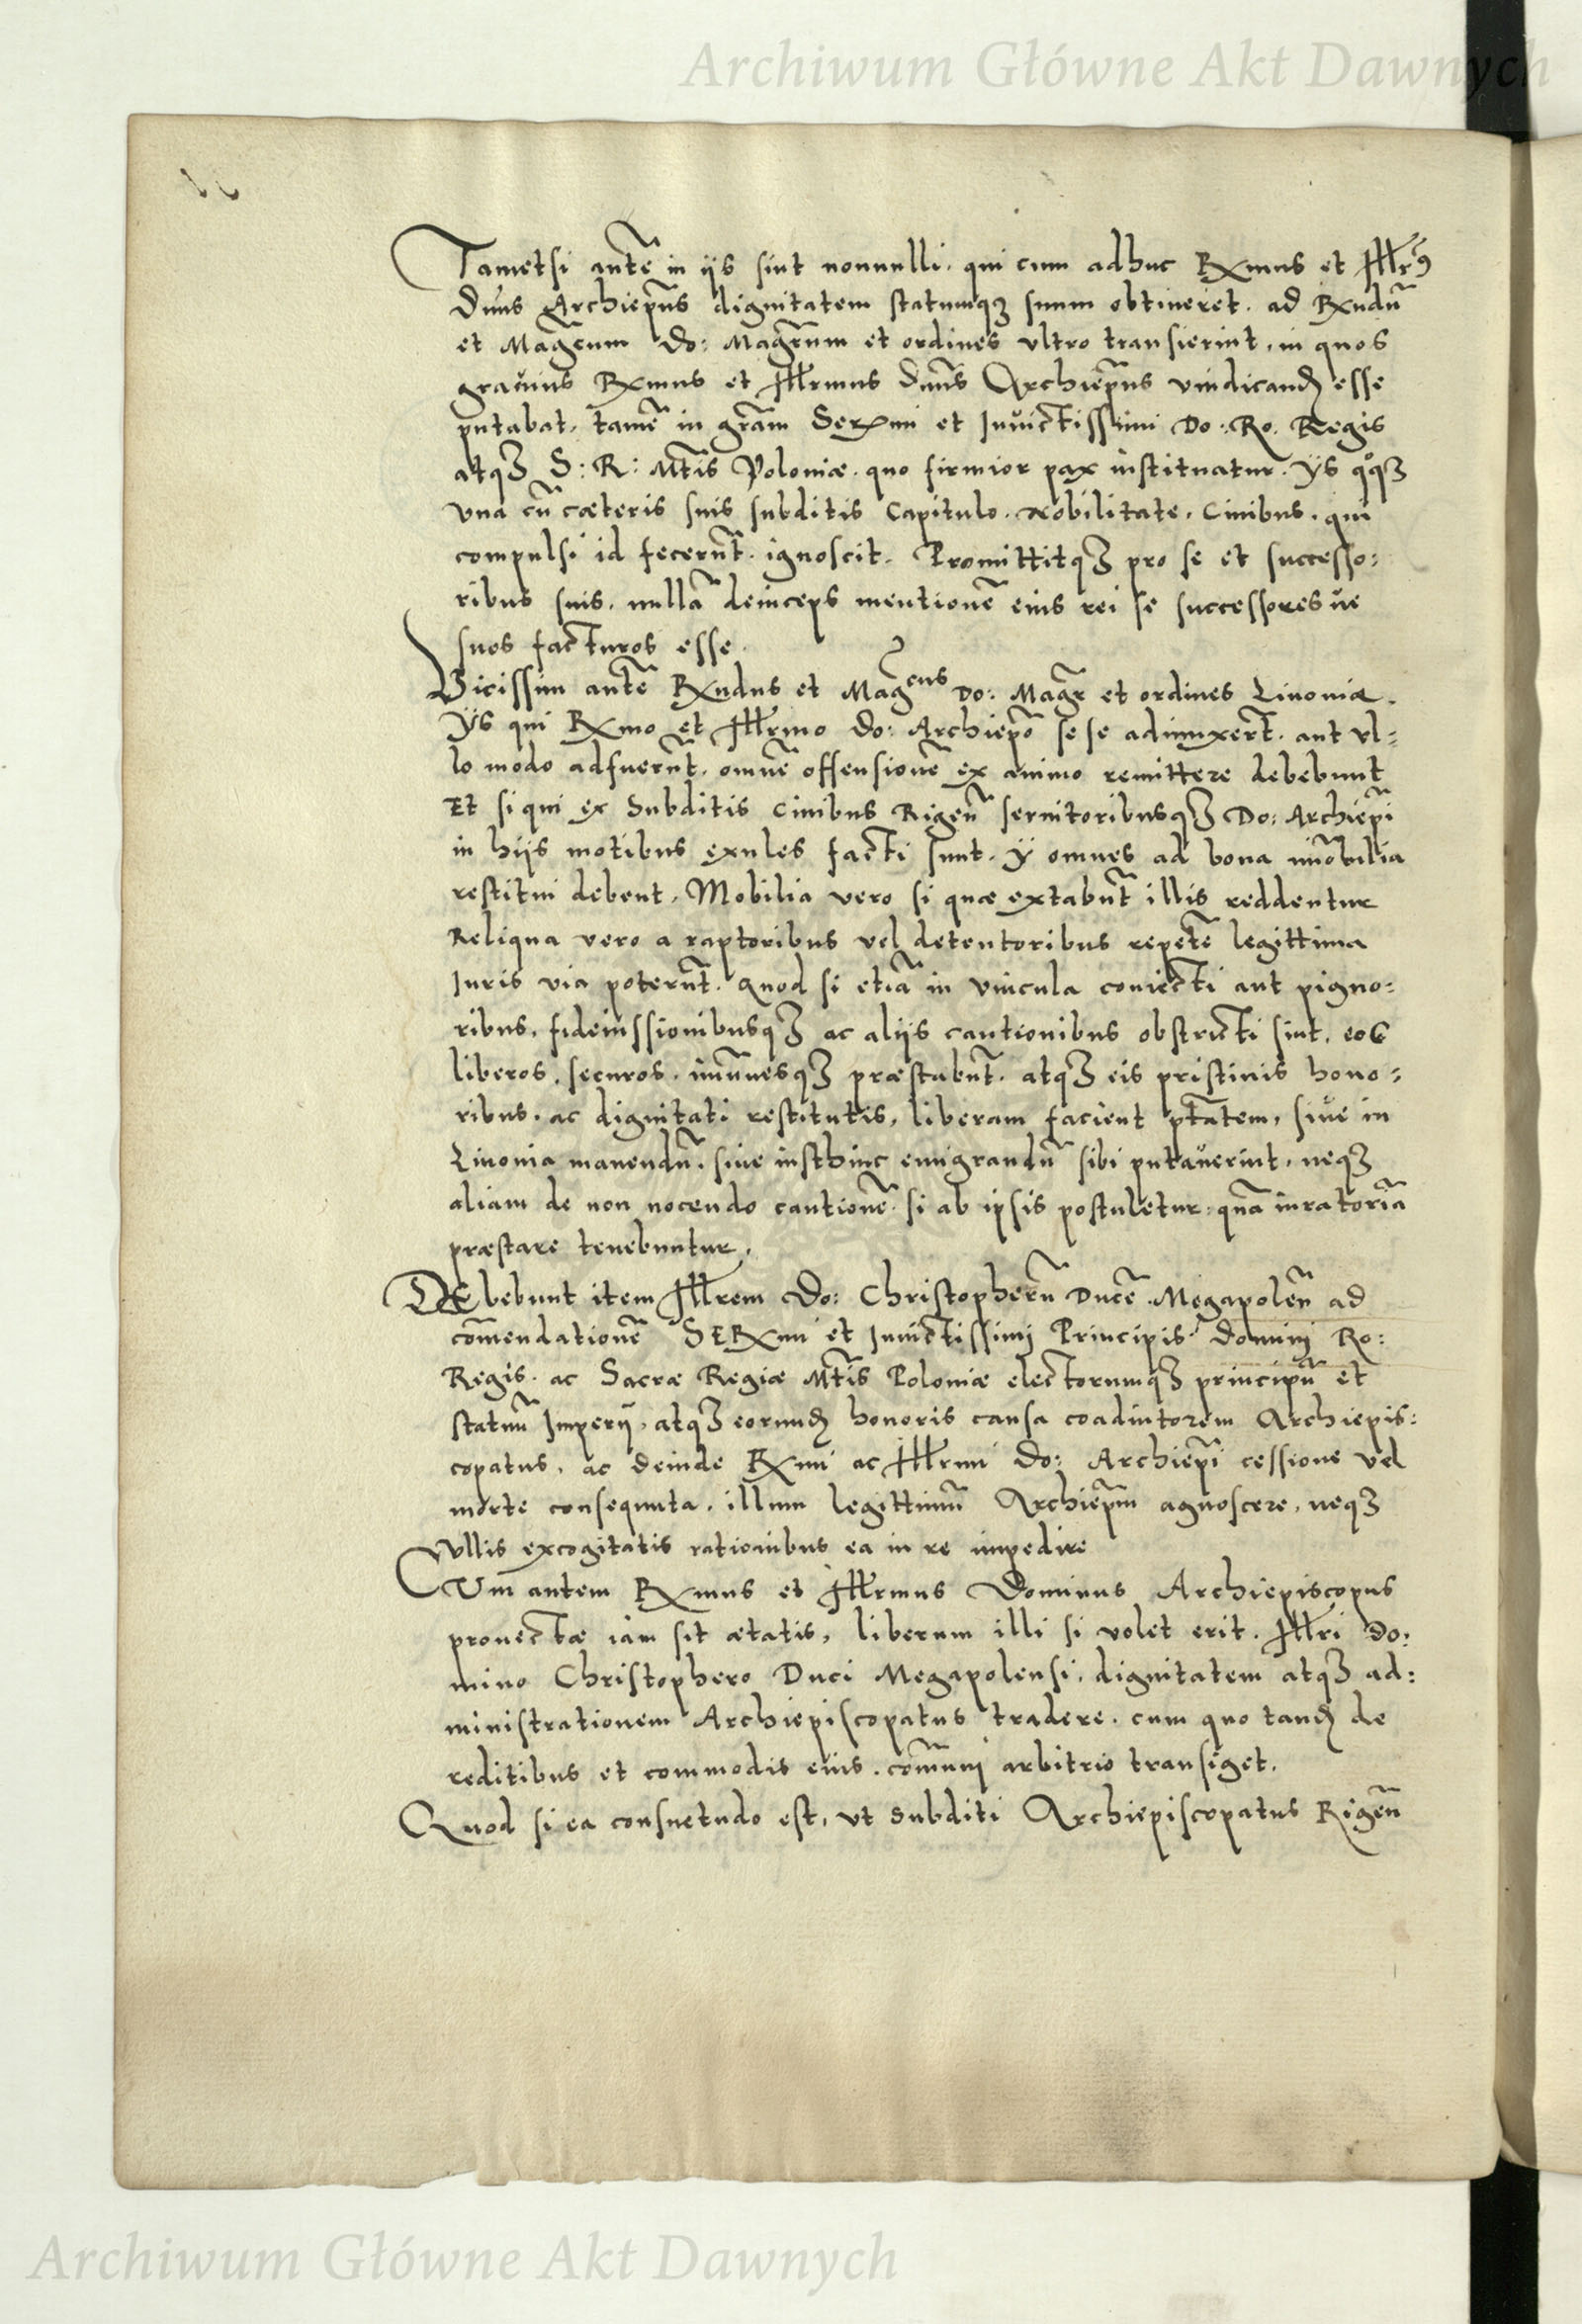 Archiwum Główne Akt Dawnych
Tametsi autē in ijs sint nonnulli, qui cum adhuc Rxmus et Illr̄9
Dn̄us Archiep̄us dignitatem statumqꝫ suum obtineret, ad Rxndū
et Mag̃cum Do: Magr̃um et ordines vltro transierint, in quos
grauius Rxmus et Illrmus Dn̄us Archiep̄us vindicandꝭ esse
putabat, tamē in gr̃am Serxmi et Inuictissimi Do: Ro: Regis
atqꝫ S: R: Mt̃is Poloniæ, quo firmior pax instituatur, ijs qo̊qꝫ
vna cū cæteris suis subditis Capitulo, Nobilitate, Ciuibus, qui
compulsi id fecerūt, ignoscit, Promittitqꝫ pro se et successo:
ribus suis, nullā deinceps mentionē eius rei se successores ve
suos facturos esse.
Vicissim autē Rxndus et Mag̃cus Do: Magr̃ et ordines Liuoniæ,
ijs qui Rxmo et Illrmo Do: Archiep̄o se se adiunxerūt, aut vl:
lo modo adfuerūt, omnē offensionē ex animo remittere debebunt
Et si qui ex Subditis Ciuibus Rigen̄ seruitoribusqꝫ Do: Archiep̄i
in hijs motibus exules facti sunt, ij omnes ad bona im̄obilia
restitui debent, Mobilia vero si quæ extabūt illis reddentur
Reliqua vero a raptoribus vel detentoribus repetē legittima
Iuris via poterūt. Quod si etiā in vincula coniecti aut pigno:
ribus, fideiussionibusqꝫ ac alijs cautionibus obstricti sint, eos
liberos, securos, im̄unesqꝫ præstabūt, atqꝫ eis pristinis hono:
ribus, ac dignitati restitutis, liberam facient pt̄atem, siue in
Liuonia manendū, siue insthinc emigrandū sibi putauerint, neqꝫ
aliam de non nocendo cautionē si ab ipsis postuletur, quā iuratoriā
præstare tenebuntur.
Debebunt item Illrem Do: Christopherū Ducē Megapolen̄ ad
com̄endationē SERxmi et Inuictissimj Principis Dominj Ro:
Regis, ac Sacræ Regiæ Mt̃is Poloniæ electorumqꝫ principū et
statuū Imperij, atqꝫ eorundꝭ honoris causa coadiutorem Archiepis:
copatus, ac deinde Rxmi ac Illrmi Do: Archiep̄i cessione vel
morte consequuta, illum legittimū Archiep̄um agnoscere, neqꝫ
vllis excogitatis rationibus ea in re impedire
Cum autem Rxmus et Illrmus Dominus Archiepiscopus
prouectæ iam sit ætatis, liberum illi si volet erit, Illri Do:
mino Christophero Duci Megapolensi, dignitatem atqꝫ ad:
ministrationem Archiepiscopatus tradere, cum quo tandꝭ de
reditibus et commodis eius, com̄unj arbitrio transiget.
Quod si ea consuetudo est, vt subditi Archiepiscopatus Rigen̄
Archiwum Główne Akt Dawnych